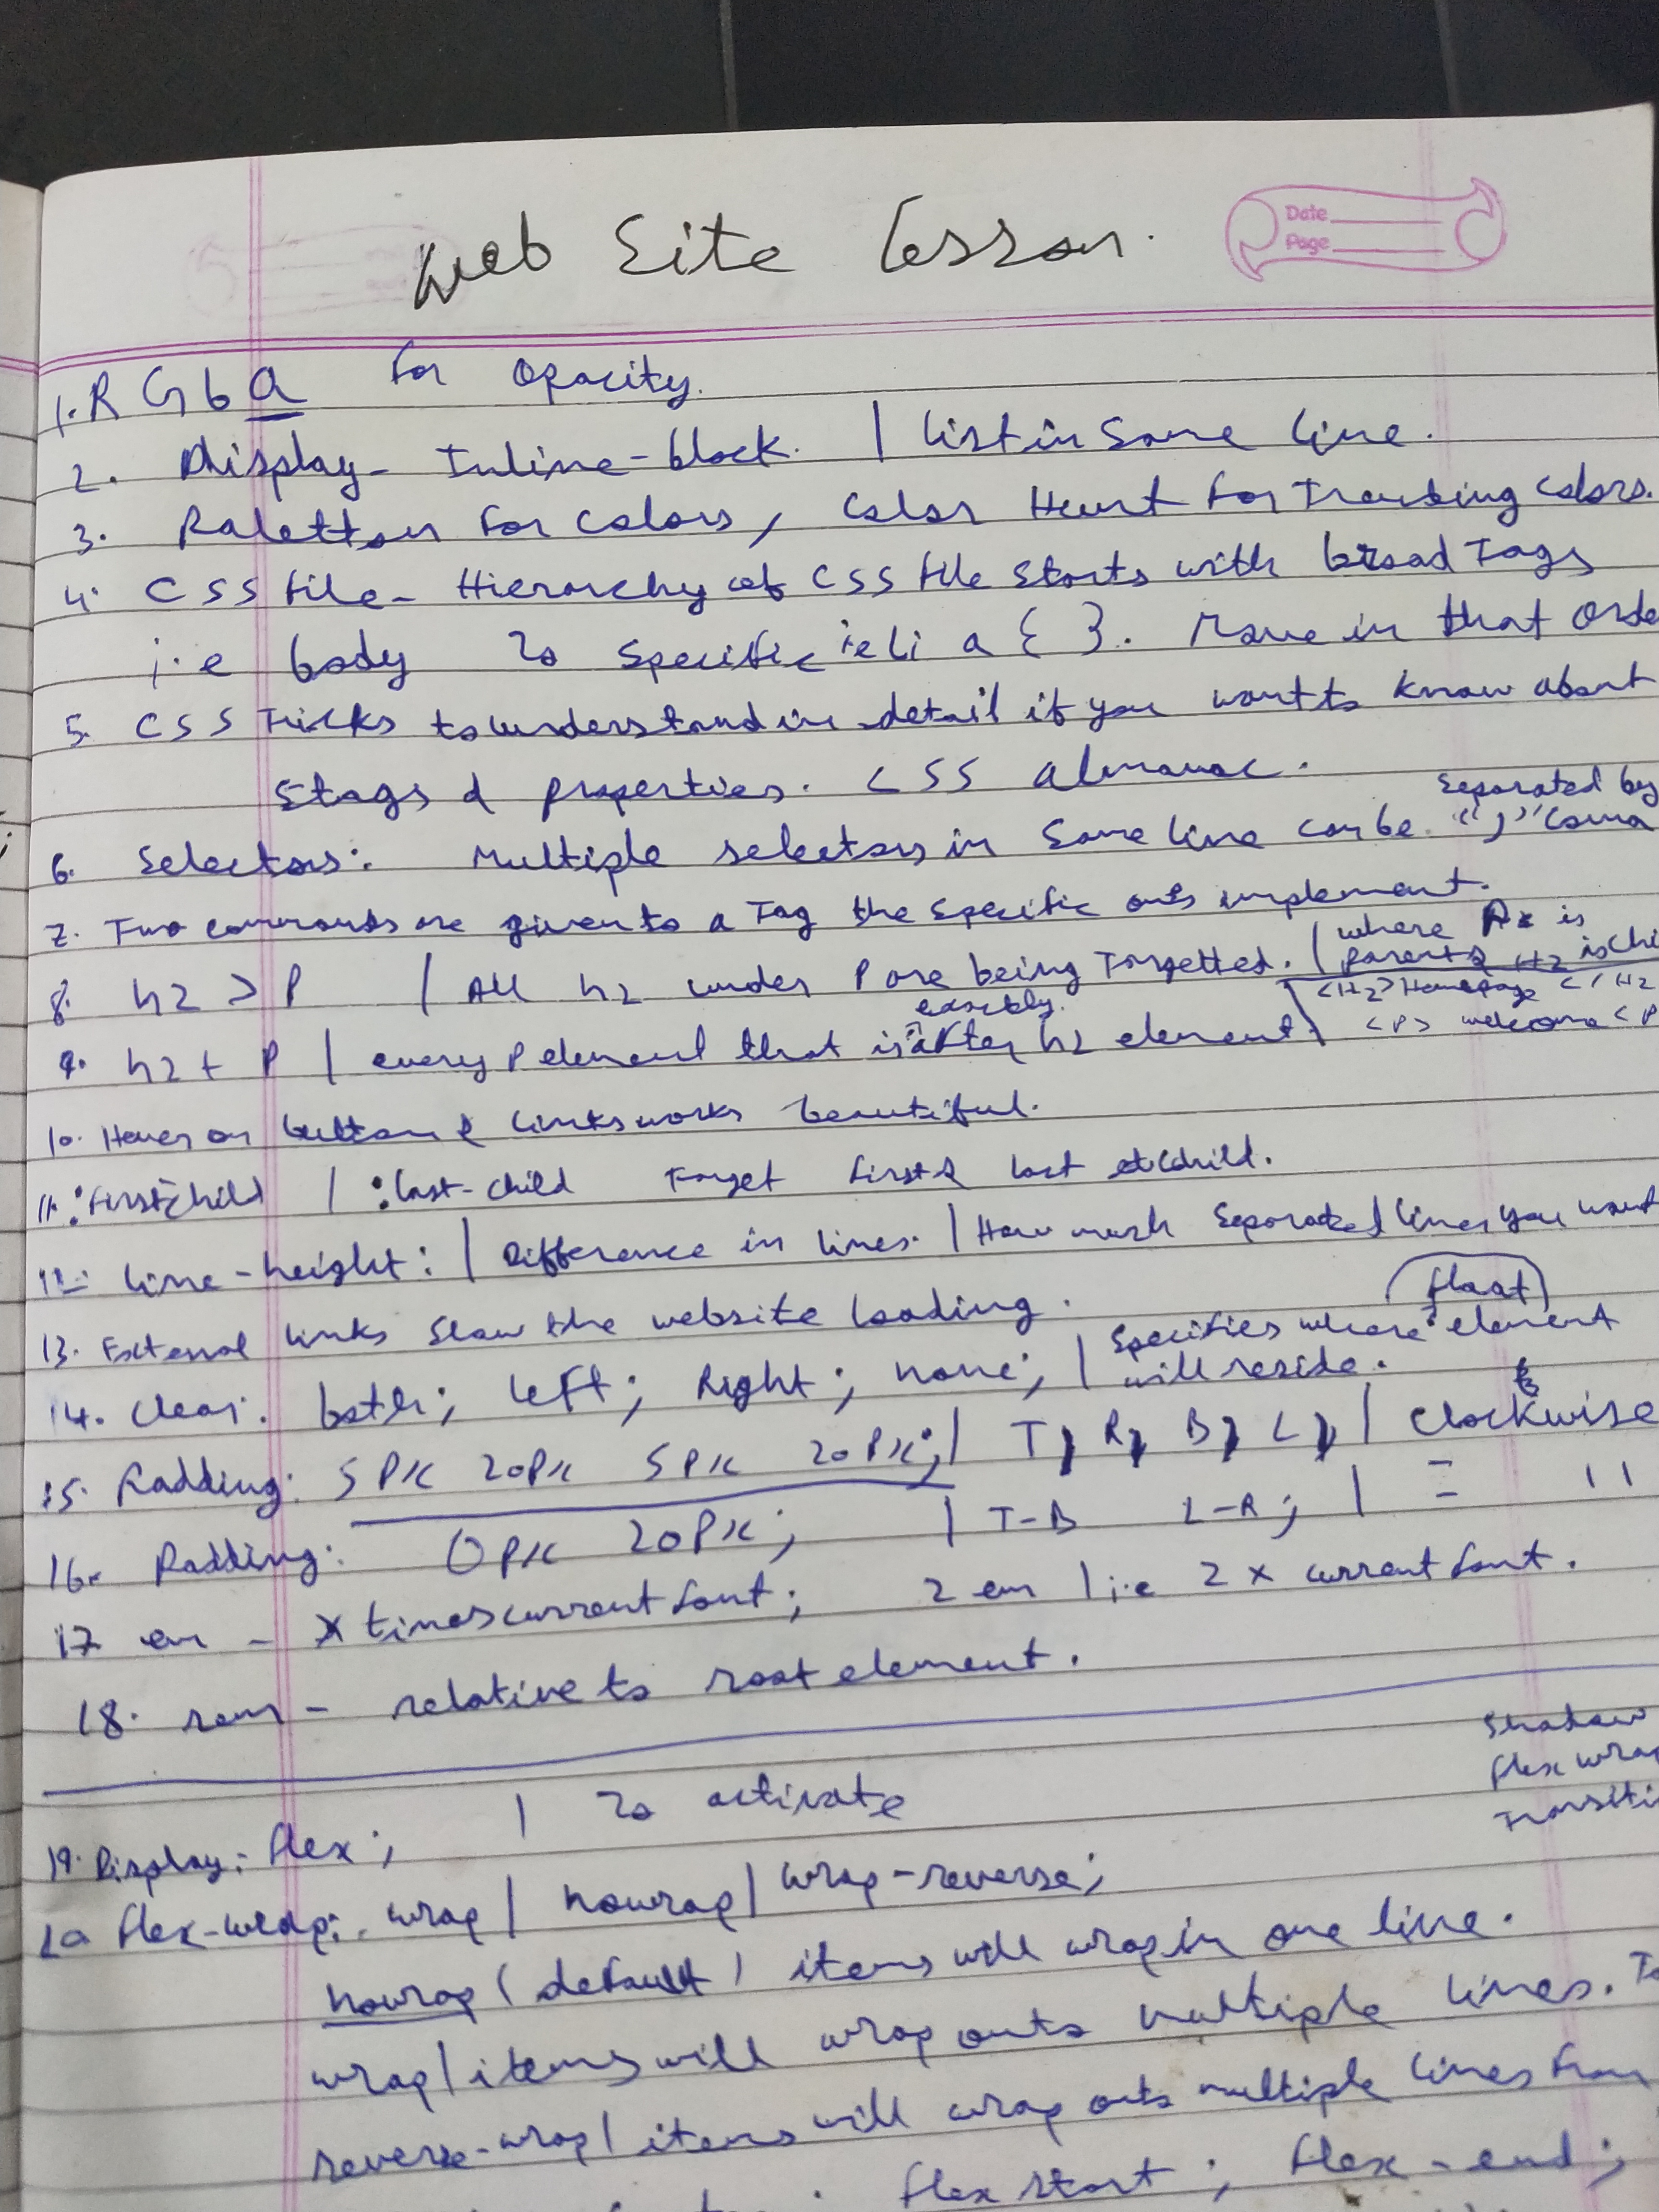 Web Site Lesson.
Date
Page
1. RGba for opacity.
2. Display - Inline-block. | list in same line.
3. Paletton for colors, Color Hunt for Trending colors.
4. CSS file - Hierarchy of CSS file starts with broad Tags
i.e body to specific ie li a { }. Move in that orde
5. CSS Tricks to understand in detail if you want to know about
tags & properties. CSS almanac.
separated by
6. Selectors: Multiple selectors in same line can be "," Coma
7. Two commands are given to a Tag the specific outs implement.
8. h2 > P | All h2 under P are being Targetted. | where is
parent & H2 is chi
<H2> Homepage </H2
9. h2 + P | every P element that is after h2 element <P> welcome <P
10. Hover on button & links works beautiful.
11. :first-child | :last-child Target first & last child.
12. line-height: | Difference in lines. | How much separated lines you want
13. External links slow the website loading.
float
14. Clear: both; left; Right; none; | Specifies where element
will reside.
15. Padding: 5px 20px 5px 20px; | T, R, B, L, | Clockwise
16. Padding: 0px 20px; | T-B L-R; | = 11
17 em - x times current font; 2 em | i.e 2 x current font.
18. rem - relative to root element.
Shadow
flex wrap
Transiti
19. Display: flex; | To activate
20 flex-wrap: wrap | nowrap | wrap-reverse;
nowrap (default) items will wrap in one line.
wrap | items will wrap outs multiple lines. To
reverse-wrap | items will wrap outs multiple lines from
flex start; flex-end;